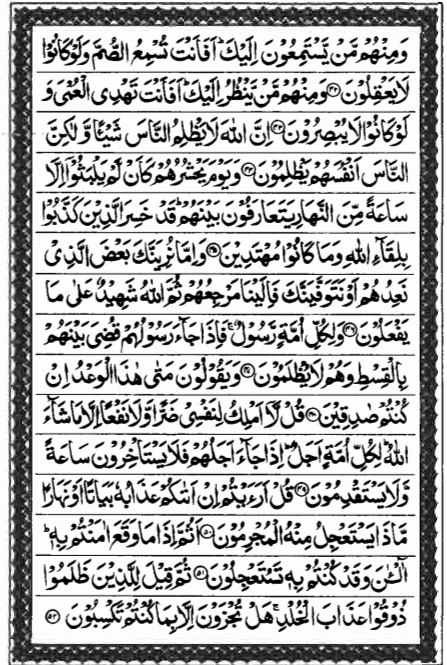 وَمِنْهُمْ مَّنْ يَّسْتَمِعُوْنَ اِلَيْكَ ؕ اَفَاَنْتَ تُسْمِعُ الصُّمَّ وَلَوْ كَانُوْا
لَا يَعْقِلُوْنَ ﴿۴۲﴾ وَمِنْهُمْ مَّنْ يَّنْظُرُ اِلَيْكَ ؕ اَفَاَنْتَ تَهْدِى الْعُمْىَ وَ
لَوْ كَانُوْا لَا يُبْصِرُوْنَ ﴿۴۳﴾ اِنَّ اللّٰهَ لَا يَظْلِمُ النَّاسَ شَيْـًٔا وَّلٰكِنَّ
النَّاسَ اَنْفُسَهُمْ يَظْلِمُوْنَ ﴿۴۴﴾ وَيَوْمَ يَحْشُرُهُمْ كَاَنْ لَّمْ يَلْبَثُوْۤا اِلَّا
سَاعَةً مِّنَ النَّهَارِ يَتَعَارَفُوْنَ بَيْنَهُمْ ؕ قَدْ خَسِرَ الَّذِيْنَ كَذَّبُوْا
بِلِقَآءِ اللّٰهِ وَمَا كَانُوْا مُهْتَدِيْنَ ﴿۴۵﴾ وَاِمَّا نُرِيَنَّكَ بَعْضَ الَّذِىْ
نَعِدُهُمْ اَوْ نَتَوَفَّيَنَّكَ فَاِلَيْنَا مَرْجِعُهُمْ ثُمَّ اللّٰهُ شَهِيْدٌ عَلٰى مَا
يَفْعَلُوْنَ ﴿۴۶﴾ وَلِكُلِّ اُمَّةٍ رَّسُوْلٌ ۚ فَاِذَا جَآءَ رَسُوْلُهُمْ قُضِىَ بَيْنَهُمْ
بِالْقِسْطِ وَهُمْ لَا يُظْلَمُوْنَ ﴿۴۷﴾ وَيَقُوْلُوْنَ مَتٰى هٰذَا الْوَعْدُ اِنْ
كُنْتُمْ صٰدِقِيْنَ ﴿۴۸﴾ قُلْ لَّاۤ اَمْلِكُ لِنَفْسِىْ ضَرًّا وَّلَا نَفْعًا اِلَّا مَا شَآءَ
اللّٰهُ ؕ لِكُلِّ اُمَّةٍ اَجَلٌ ؕ اِذَا جَآءَ اَجَلُهُمْ فَلَا يَسْتَاْخِرُوْنَ سَاعَةً
وَّلَا يَسْتَقْدِمُوْنَ ﴿۴۹﴾ قُلْ اَرَءَيْتُمْ اِنْ اَتٰىكُمْ عَذَابُهٗ بَيَاتًا اَوْ نَهَارًا
مَّاذَا يَسْتَعْجِلُ مِنْهُ الْمُجْرِمُوْنَ ﴿۵۰﴾ اَثُمَّ اِذَا مَا وَقَعَ اٰمَنْتُمْ بِهٖ ؕ
آٰلْـٰٔنَ وَقَدْ كُنْتُمْ بِهٖ تَسْتَعْجِلُوْنَ ﴿۵۱﴾ ثُمَّ قِيْلَ لِلَّذِيْنَ ظَلَمُوْا
ذُوْقُوْا عَذَابَ الْخُلْدِ ۚ هَلْ تُجْزَوْنَ اِلَّا بِمَا كُنْتُمْ تَكْسِبُوْنَ ﴿۵۲﴾